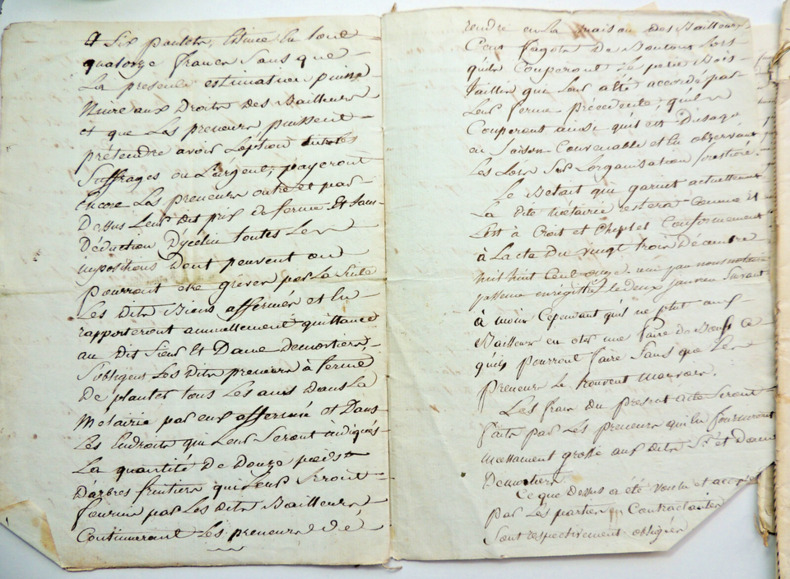 & Six poulets, Estimé En tout
quatorze francs Sans que
La presente estimation puisse
Nuire aux Droits des Bailleurs
et que Les preneurs puissent
prétendre avoir
Suffrages ou L'argent, payeront
Encore Les preneurs outre et par
Dessus Leur dit prix de ferme Et Sans
Déduction D'ycelui toutes Les
impositions Dont peuvent ou
pourront être grevés par La Suite
Les dits Biens affermés et En
rapporteront annuellement quittance
au dit Sieur Et Dame
Sobligent Les dits preneurs à ferme
de planter tous Les ans Dans La
Métairie par eux affermée et Dans
Les Endroits qui Leur Seront indiqués
La quantité de Douze pieds
D'arbres fruitiers qui Leur Seront
fournis par Les dits Bailleurs,
Continueront Les preneurs de
rendre en La maison des Bailleurs
Cent fagots de Lors
qu'ils Couperont Le petit Bois
taillis qui Leur a été accordé par
Leur ferme précédente, qu'ils
Couperont ainsi qu'il est D'usage
en Saison Convenable et En observant
Les Lois Sur L'organisation forestière.
Le Betail qui garnit actuellement
La dite Métairie restera Comme il
Est à Croit et Cheptel Conformement
à L'acte du vingt trois décembre
mil huit Cent onze, reçu par nous notaire
enregistré Le deux janvier Suivant
à moins Cependant qu'il ne plut aux
Bailleurs
qu'ils pourront faire Sans que Les
Preneurs Le trouvent mauvais.
Les frais du present acte Seront
faits par Les preneurs qui En fourniront
grosse aux dits Sr. et Dame
Ce que Dessus a été voulu et accepté
par Les parties
Sont respectivement obligées